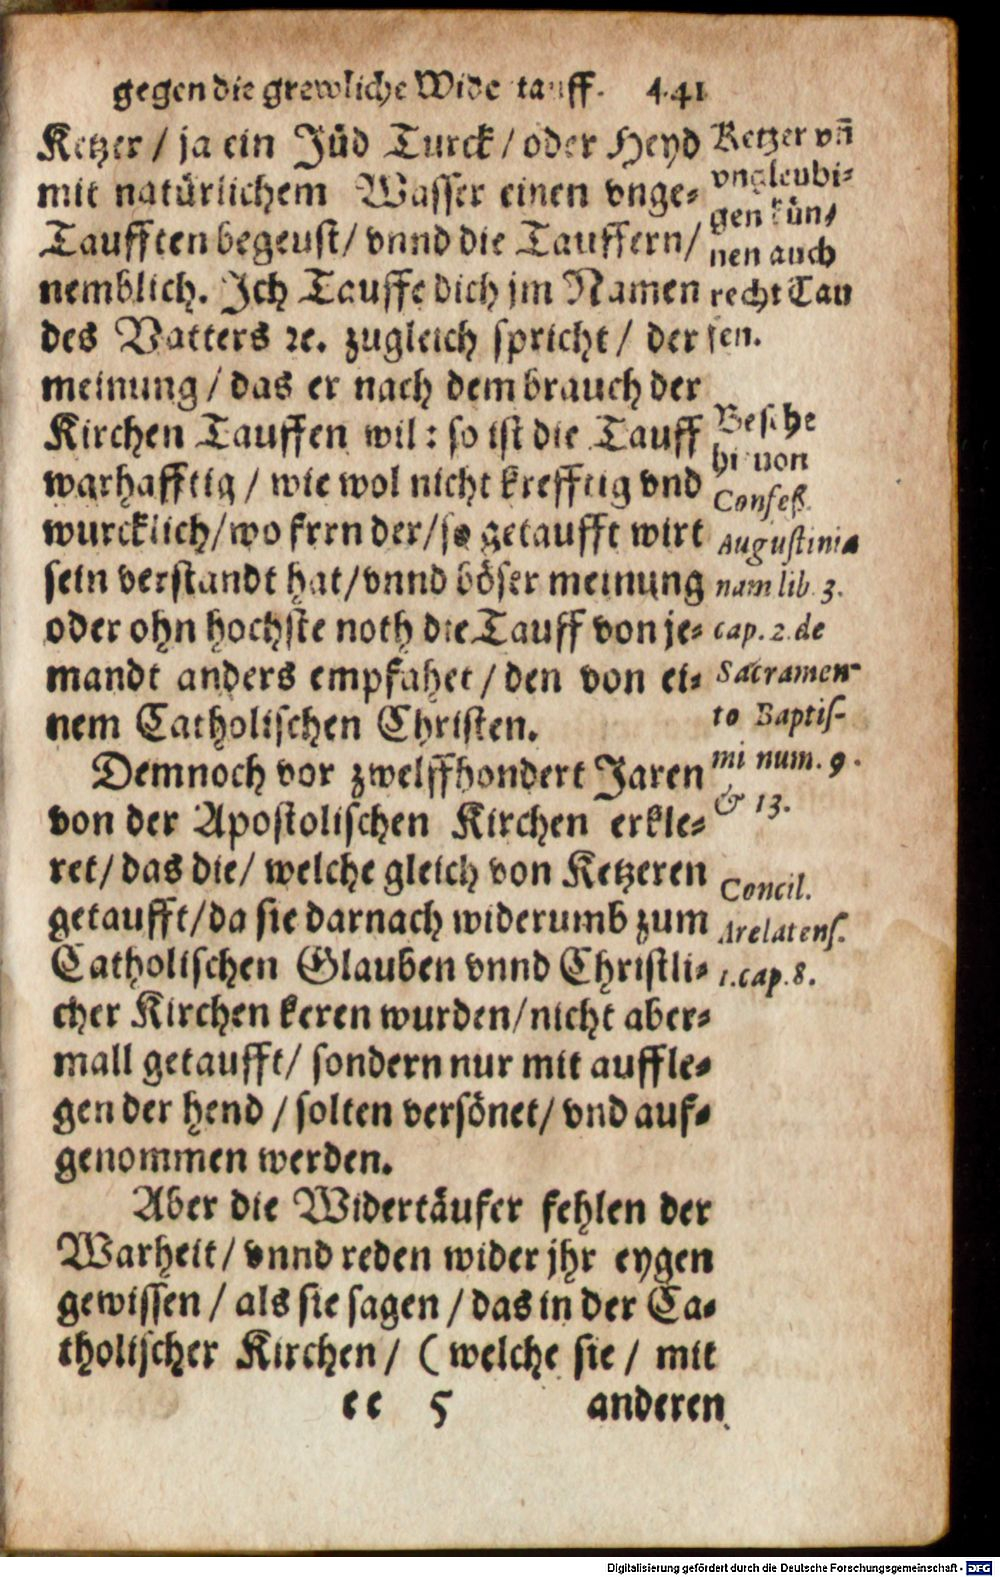 gegen die grewliche Wide tauff. 441
Ketzer / ja ein Jüd Turck / oder Heyd
mit natürlichem Wasser einen vnge-
Taufften begeust / vnnd die Tauffern /
nemblich. Ich Tauffe dich jm Namen
des Vatters ꝛc. zugleich spricht / der
meinung / das er nach dem brauch der
Kirchen Tauffen wil : so ist die Tauff
warhafftig / wie wol nicht krefftig vnd
wurcklich / wo frrn der / so getaufft wirt
sein verstandt hat / vnnd böser meinung
oder ohn hochste noth die Tauff von je-
mandt anders empfahet / den von ei-
nem Catholischen Christen.
Demnoch vor zwelffhondert Jaren
von der Apostolischen Kirchen erkle-
ret / das die / welche gleich von Ketzeren
getaufft / da sie darnach widerumb zum
Catholischen Glauben vnnd Christli-
cher Kirchen keren wurden / nicht aber-
mall getaufft / sondern nur mit auffle-
gen der hend / solten versönet / vnd auf-
genommen werden.
Aber die Widertäufer fehlen der
Warheit / vnnd reden wider jhr eygen
gewissen / als sie sagen / das in der Ca-
tholischer Kirchen / ( welche sie / mit
ee 5 anderen
Ketzer vñ
vngleubi-
gen kün-
nen auch
recht Tau
fen.
Besihe
hi von
Confeß.
Augustinia
nam lib. 3.
cap. 2. de
Sacramen-
to Baptis-
mi num. 9.
& 13.
Concil.
Arelatens.
1. cap. 8.
Digitalisierung gefördert durch die Deutsche Forschungsgemeinschaft - DFG